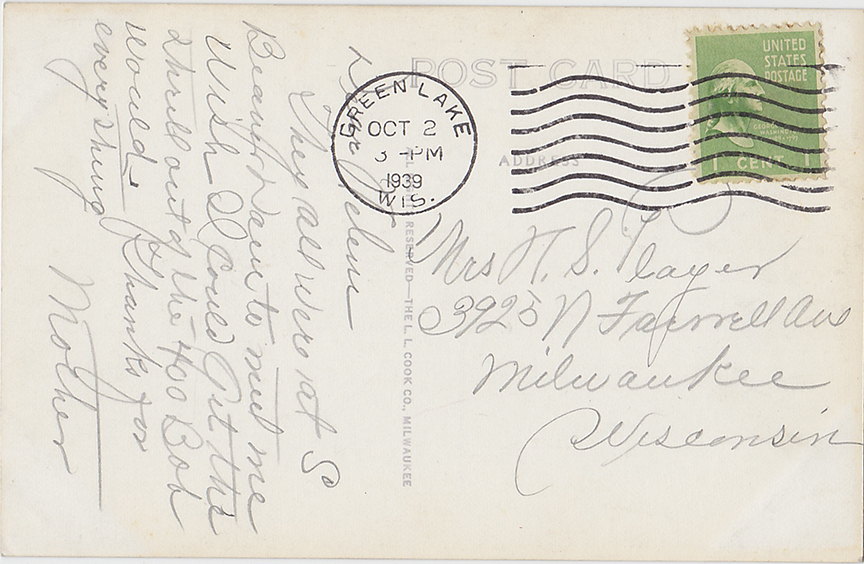 POST CARD
GREEN LAKE
OCT 2
3 -PM
1939
WIS.
UNITED
STATES
POSTAGE
GEORGE
WASHINGTON
1 CENT 1
ADDRESS
Dear Helene
They all were at So
Beaver Dam to meet me
Wish I could Get the
thrill out of the 400 Bob
would. Thanks for
everything
Mother
RESERVED—THE L. L. COOK CO., MILWAUKEE
Mrs H. S. Player
3925 N Farwell Ave
Milwaukee
Wisconsin